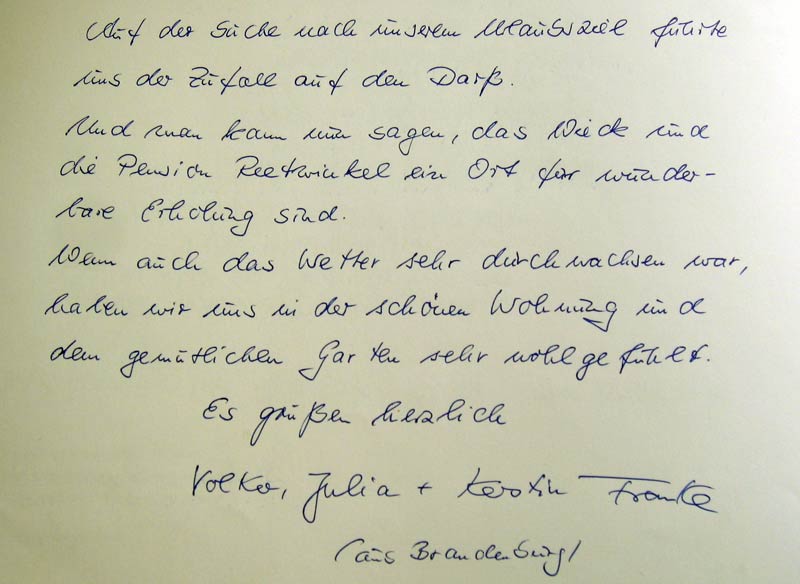 Auf der Suche nach unserem Urlaubsziel führte
uns der Zufall auf den Darß.
Und man kann nur sagen, das Wieck und
die Pension Reetwinkel ein Ort für wunder-
bare Erholung sind.
Wenn auch das Wetter sehr durchwachsen war,
haben wir uns in der schönen Wohnung und
dem gemütlichen Garten sehr wohlgefühlt.
Es grüßen herzlich
Volker, Julia + Kerstin Franke
(aus Brandenburg)